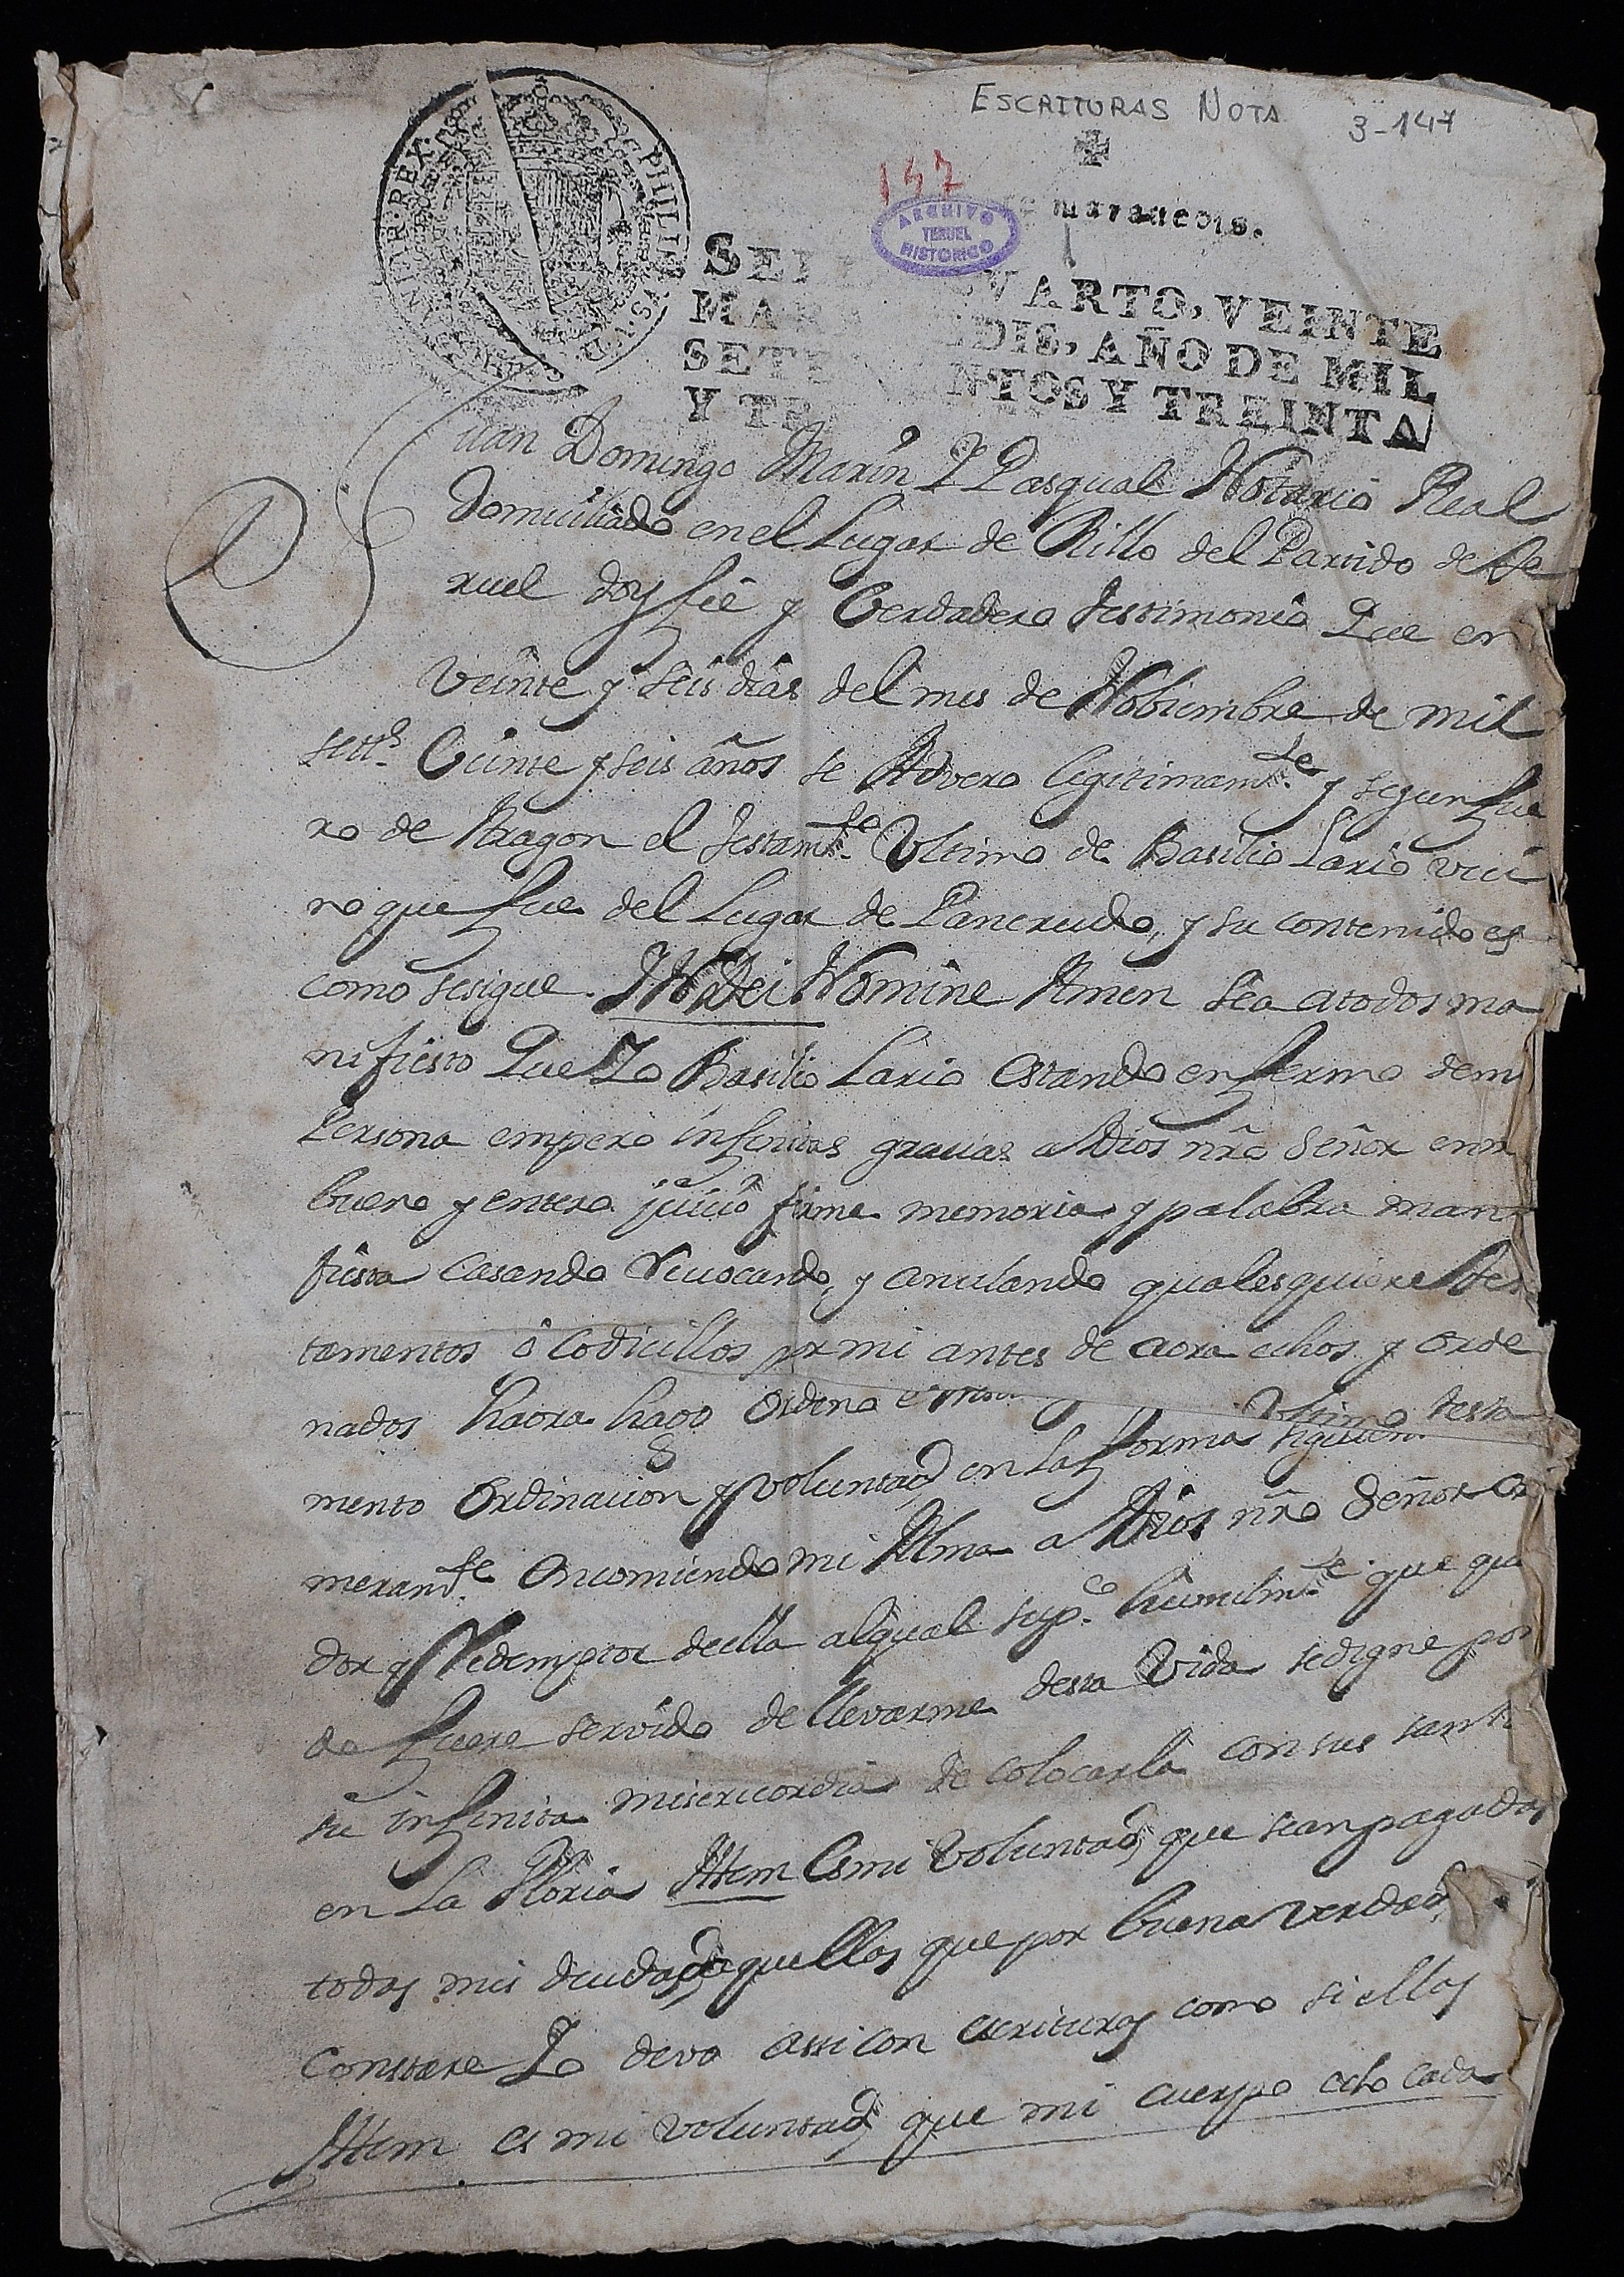 ESCRITURAS NOTA 3-147
147
maravedis.
ARCHIVO
TERUEL
HISTORICO
PHILIP
D
HISPANIAR. REX.
SE VARTO, VEINTE
MARA EDIS, AÑO DE MIL
SETE NTOS Y TREINTA
Y TR
Juan Domingo Marin Y Pasqual Notario Real
domiciliado en el Lugar de Rillo del Partido de Te
ruel doy fee y Verdadero testimonio Que en
Veinte y seis dias del mes de Nobiembre de mil
sett.s Veinte y seis años se Advero legitimam.te y segun fue
ro de Aragon el testam.to Ultimo de Basilio Lario veci
no que fue del Lugar de Pancrudo, y su contenido es
como se sigue. IN Dei Nomine Amen sea a todos ma
nifiesto Que Yo Basilio Lario estando enfermo de mi
Persona empero infinitas gracias a Dios nr̃o Señor en mi
bueno y entero juicio firme memoria y palabra mani
fiesta casando revocando, y anulando qualesquiere tes
tamentos ó codicillos por mi antes de aora echos y orde
nados haora hago ordeno Ultimo testa
mento ordinacion y voluntad en la forma siguien
meram.te encomiendo mi Alma a Dios nr̃o Señor Cria
dor y Redemptor de ella al qual sup.co humilm.te que qua
do fuere servido de llevarme desta Vida se digne por
su infinita misericordia de colocarla con sus santos
en La Gloria Ittem es mi voluntad que sean pagadas
todas mis deudas aquellas que por buena verdad
constare Yo devo assi con escrituras como si ellas
Ittem es mi voluntad que mi cuerpo echo cada